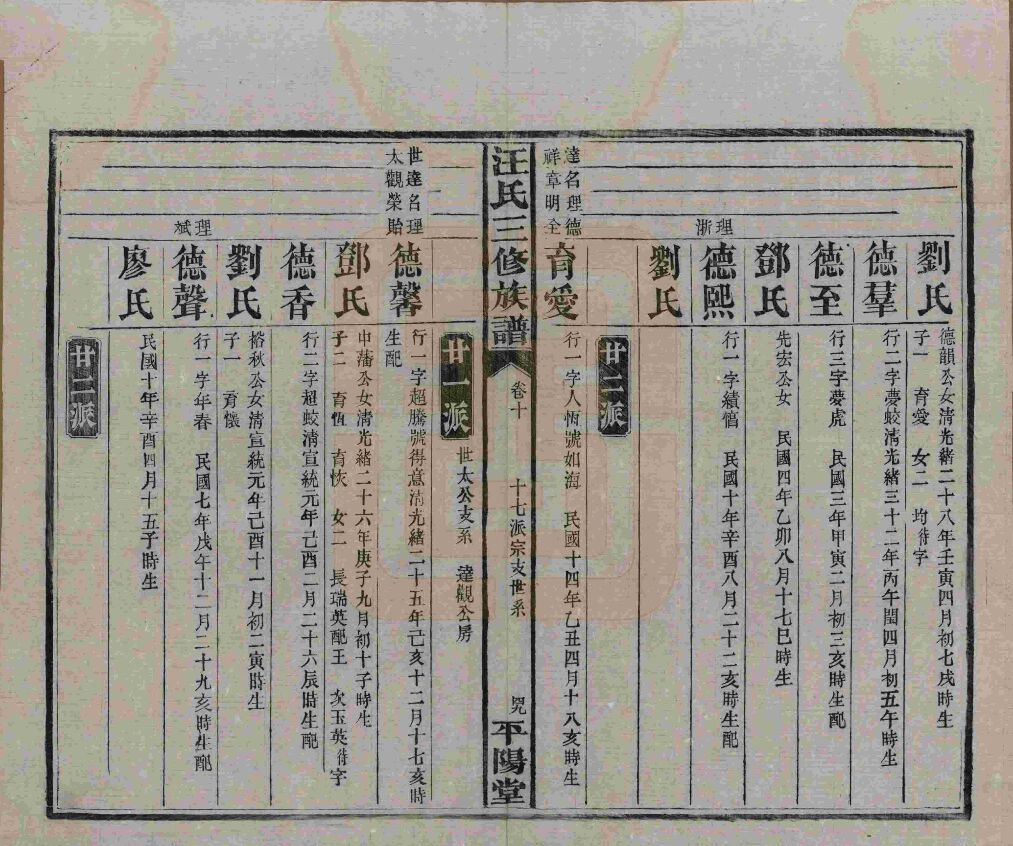 劉氏
德韻公女清光緒二十八年壬寅四月初七戌時生
子一 育愛 女二 均待字
德羣
行二字夢蛟清光緒三十二年丙午閏四月初五午時生
德至
行三字夢虎 民國三年甲寅二月初三亥時生配
鄧氏
先宏公女 民國四年乙卯八月十七巳時生
理浙
德熙
行一字績信 民國十年辛酉八月二十二亥時生配
劉氏
廿二派
達名理德
祥章明全
育愛
行一字人恆號如海 民國十四年乙丑四月十八亥時生
汪氏三修族譜
卷十
十七派宗支世系
平陽堂
廿一派
世太公支系 達觀公房
世達名理
太觀榮貽
德馨
行一字超騰號得意清光緒二十五年己亥十二月十七亥時
生配
鄧氏
中藩公女清光緒二十六年庚子九月初十子時生
子二 育恆 育恢 女二 長瑞英配王 次玉英待字
德香
行二字超蛟清宣統元年己酉二月二十六辰時生配
劉氏
裕秋公女清宣統元年己酉十一月初二寅時生
子一 育懷
理斌
德聲
行一字年春 民國七年戊午十二月二十九亥時生配
廖氏
民國十年辛酉四月十五子時生
廿二派